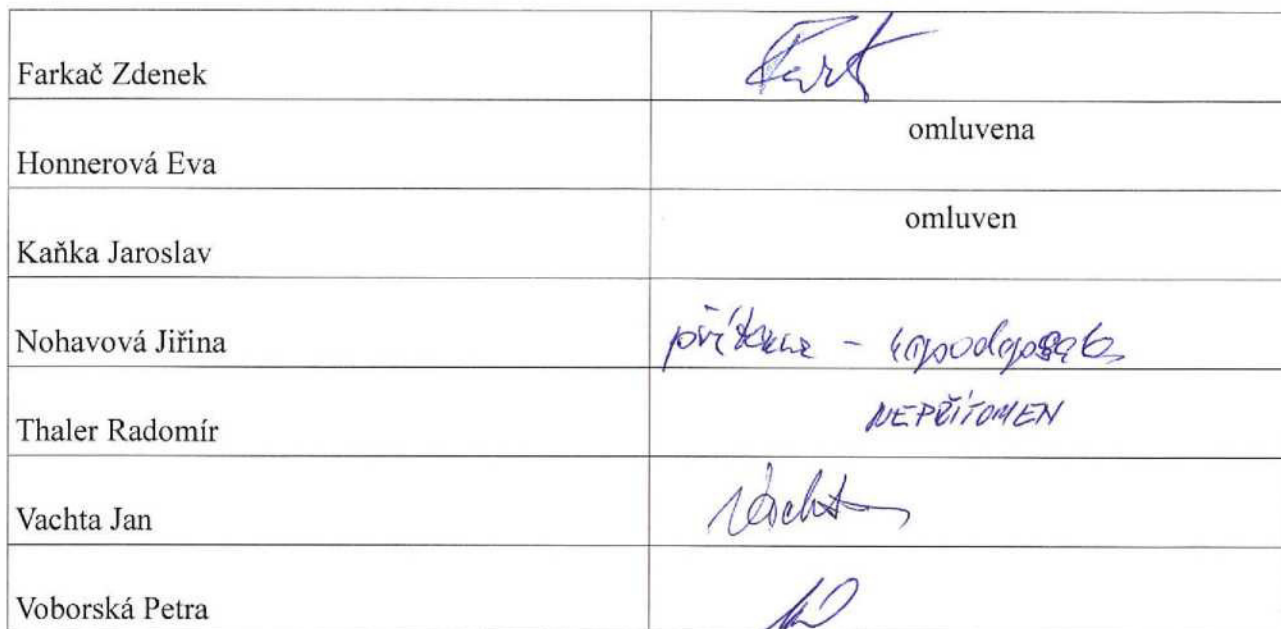 Farkač Zdenek
omluvena
Honnerová Eva
omluven
Kaňka Jaroslav
Nohavová Jiřina přítomna -
Thaler Radomír NEPŘÍTOMEN
Vachta Jan
Voborská Petra